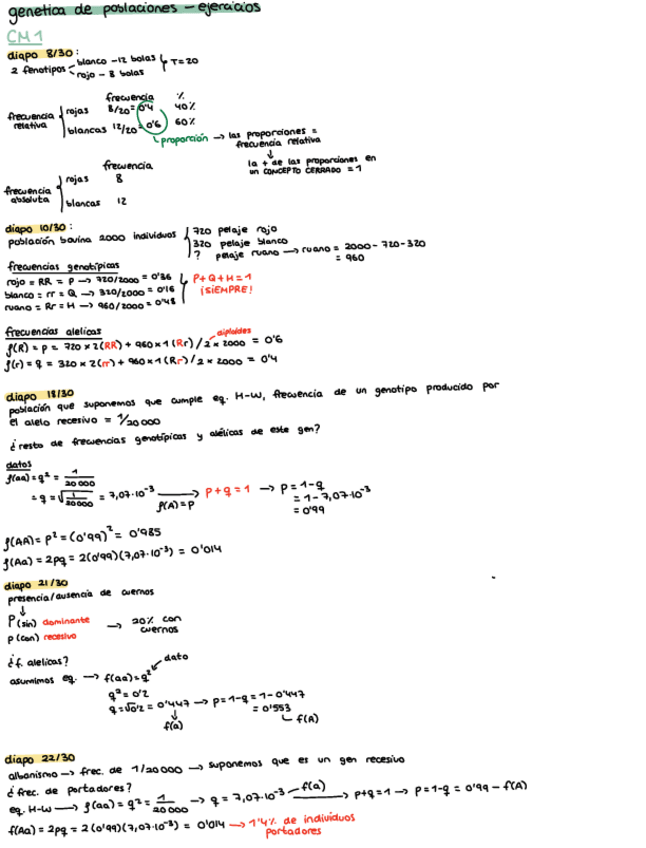 genetica de poblaciones - ejercicios
CM1
diapo 8/30:
2 fenotipos blanco - 12 bolas T=20
rojo - 8 bolas
frecuencia %
frecuencia relativa rojas 8/20 = 0'4 40%
blancas 12/20 = 0'6 60%
proporción → las proporciones = frecuencia relativa
↓
la + de las proporciones en un CONCEPTO CERRADO = 1
frecuencia
frecuencia absoluta rojas 8
blancas 12
diapo 10/30:
población bovina 2000 individuos 720 pelaje rojo
320 pelaje blanco
? pelaje ruano → ruano = 2000 - 720 - 320
= 960
frecuencias genotípicas
rojo = RR = P → 720/2000 = 0'36
blanco = rr = Q → 320/2000 = 0'16
ruano = Rr = H → 960/2000 = 0'48
P+Q+H=1
¡SIEMPRE!
frecuencias alelicas
diploides
f(R) = p = 720 x 2(RR) + 960 x 1 (Rr) / 2 x 2000 = 0'6
f(r) = q = 320 x 2(rr) + 960 x 1 (Rr) / 2 x 2000 = 0'4
diapo 18/30
población que suponemos que cumple eq. H-W, frecuencia de un genotipo producido por
el alelo recesivo = 1/20 000
¿resto de frecuencias genotípicas y alélicas de este gen?
datos
f(aa) = q² = 1/20 000
= q = √1/20000 = 7,07·10⁻³ → f(A) = p p+q=1 → p = 1-q
= 1 - 7,07·10⁻³
= 0'99
f(AA) = p² = (0'99)² = 0'985
f(Aa) = 2pq = 2(0'99)(7,07·10⁻³) = 0'014
diapo 21/30
presencia/ausencia de cuernos
↓
P (sin) dominante → 20% con cuernos
p (con) recesivo
¿f. alelicas? dato
asumimos eq. → f(aa) = q²
q² = 0'2
q = √0'2 = 0'447 → p = 1-q = 1-0'447
= 0'553
↓ f(a)
f(A)
diapo 22/30
albanismo → frec. de 1/20000 → suponemos que es un gen recesivo
¿frec. de portadores?
eq. H-W → f(aa) = q² = 1/20 000 → q = 7,07·10⁻³ - f(a) → p+q=1 → p=1-q = 0'99 - f(A)
f(Aa) = 2pq = 2(0'99)(7,07·10⁻³) = 0'014 → 1'4% de individuos
portadores